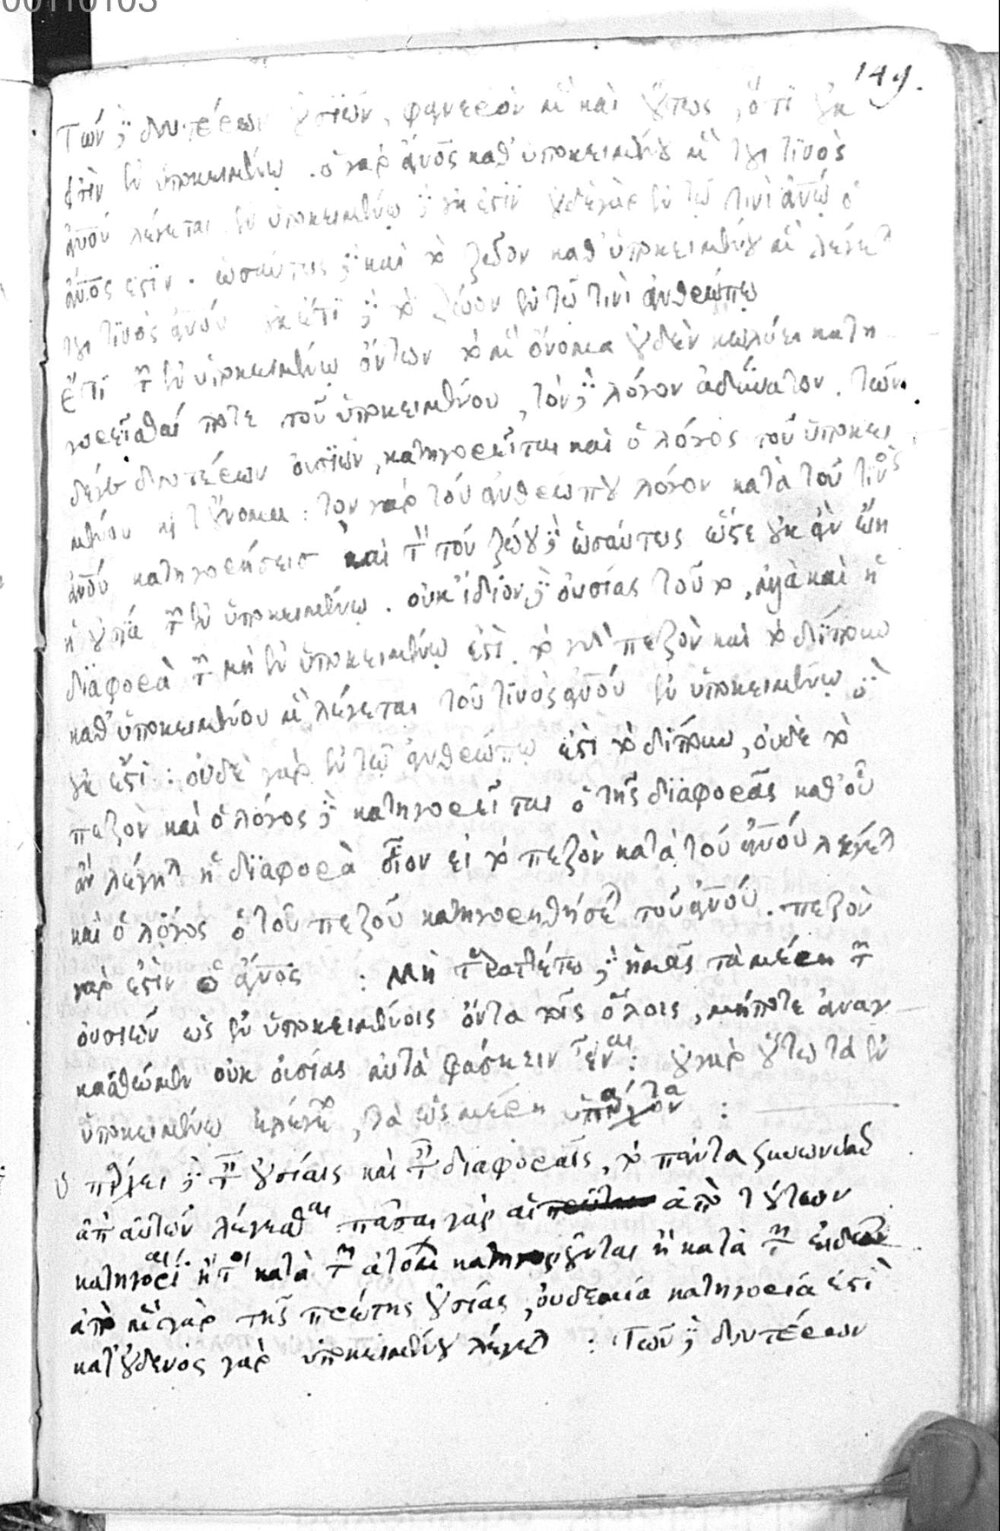 149.
Τῶν δὲ δευτέρων οὐσιῶν, φανερὸν μ(ὲν) καὶ οὕτως, ὅτι οὐκ
ἐστὶν ἐν ὑποκειμένῳ. ὁ γὰρ ἄν(θρωπ)ος καθ' ὑποκειμένου μ(ὲν) τοῦ τινὸς
ἀν(θρώπ)ου λέγεται ἐν ὑποκειμένῳ δὲ οὐκ ἐστὶν οὐδὲ γὰρ ἐν τῷ τινὶ ἀν(θρώπ)ῳ ὁ
ἄν(θρωπ)ός ἐστιν. ὡσαύτως δὲ καὶ τὸ ζῶον καθ' ὑποκειμένου μ(ὲν) λέγετ(αι)
τοῦ τινὸς ἀν(θρώπ)ου οὐκ ἔστι δὲ τὸ ζῶον ἐν τῷ τινὶ ἀνθρώπῳ
ἔτι τῶν ἐν ὑποκειμένῳ ὄντων τὸ μ(ὲν) ὄνομα οὐδὲν κωλύει κατη
γορεῖσθαί ποτε τοῦ ὑποκειμένου, τὸν δὲ λόγον ἀδύνατον. τῶν
δέ γε δευτέρων οὐσιῶν, κατηγορεῖται καὶ ὁ λόγος τοῦ ὑποκει
μένου κ(αὶ) τοὔνομα : τὸν γὰρ τοῦ ἀνθρώπου λόγον κατὰ τοῦ τινὸς
ἀν(θρώπ)ου κατηγορήσεις καὶ τὸν τοῦ ζώου δὲ ὡσαύτως ὥστε οὐκ ἂν εἴη
ἡ οὐσία τῶν ἐν ὑποκειμένῳ. οὐκ ἴδιον δὲ οὐσίας τοῦτο, ἀλλὰ καὶ ἡ
διαφορὰ τῶν μὴ ἐν ὑποκειμένῳ ἐστὶ. τὸ γὰρ πεζὸν καὶ τὸ δίπουν
καθ' ὑποκειμένου μ(ὲν) λέγεται τοῦ τινὸς ἀν(θρώπ)ου ἐν ὑποκειμένῳ δὲ
οὐκ ἔστι : οὐδὲ γὰρ ἐν τῷ ἀνθρώπῳ ἐστὶ τὸ δίπουν, οὐδὲ τὸ
πεζὸν καὶ ὁ λόγος δὲ κατηγορεῖται ὁ τῆς διαφορᾶς καθ' οὗ
ἂν λέγητ(αι) ἡ διαφορὰ οἷον εἰ τὸ πεζὸν κατὰ τοῦ ἀν(θρώπ)ου λέγετ(αι)
καὶ ὁ λόγος ὁ τοῦ πεζοῦ κατηγορηθήσετ(αι) τοῦ ἀν(θρώπ)ου. πεζὸν
γάρ ἐστιν ὁ ἄν(θρωπ)ος : Μὴ ταραττέτω δὲ ἡμᾶς τὰ μέρη τῶν
οὐσιῶν ὡς ἐν ὑποκειμένοις ὄντα τοῖς ὅλοις, μήποτε ἀναγ
κασθῶμεν οὐκ οὐσίας αὐτὰ φάσκειν εἶναι : οὐ γὰρ οὕτω τὰ ἐν
ὑποκειμένῳ ἐλέγετο, τὰ ὡς μέρη ὑπάρχοντα :
ὑπάρχει δὲ ταῖς οὐσίαις καὶ ταῖς διαφοραῖς, τὸ πάντα συνωνύμως
ἀπ' αὐτῶν λέγεσθαι πᾶσαι γὰρ αἱ ἀπὸ τούτων
κατηγορίαι ἤτοι κατὰ τῶν ἀτόμων κατηγοροῦνται ἢ κατὰ τῶν εἰδῶν
ἀπὸ μ(ὲν) γὰρ τῆς πρώτης οὐσίας, οὐδεμία κατηγορία ἐστὶ
κατ' οὐδενὸς γὰρ ὑποκειμένου λέγετ(αι) : Τῶν δὲ δευτέρων